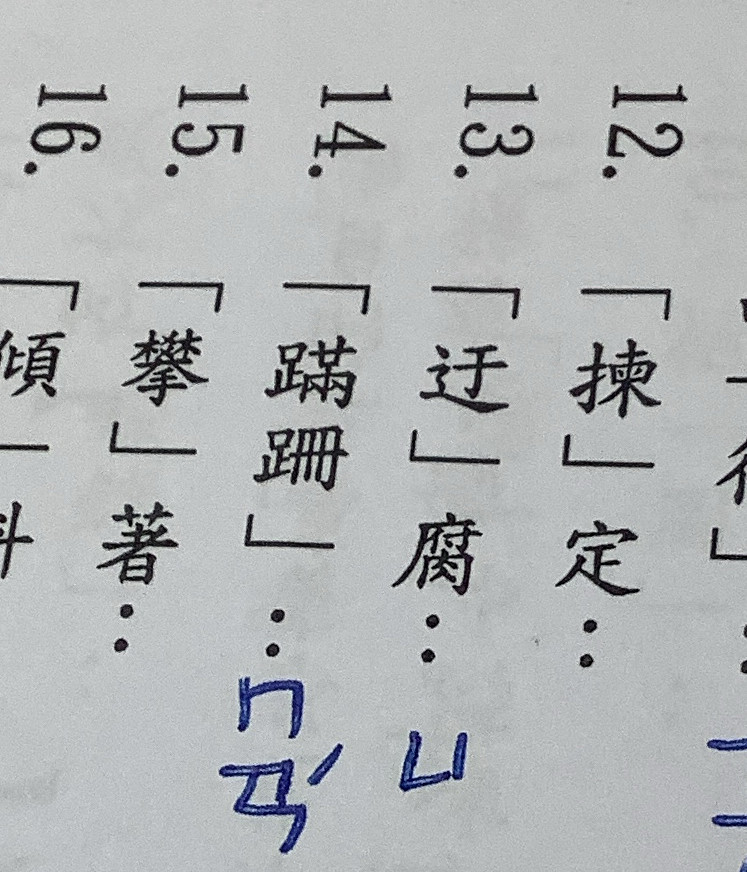 12.「揀」定：
13.「迂」腐：ㄩ
14.「蹣跚」：ㄇㄢˊ
15.「攀」著：
16.「傾」